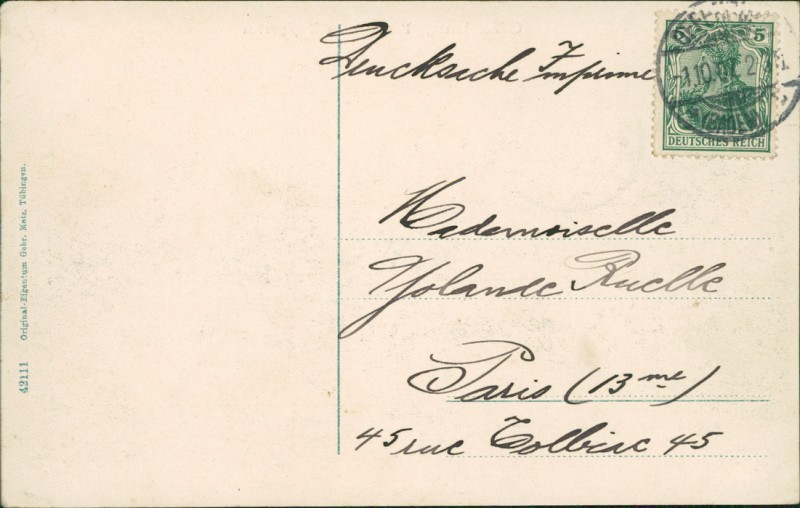 42111 Original-Eigentum Gebr. Metz, Tübingen.
Drucksache Imprimé
5 5
DEUTSCHES REICH
Mademoiselle
Yolande Ruelle
Paris (13me)
45 rue Tolbiac 45